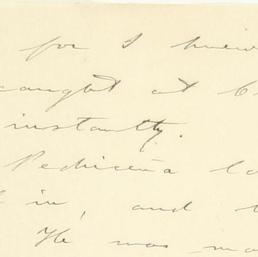 for I knew
caught at
instantly.
Pedriceña
in, and
He was